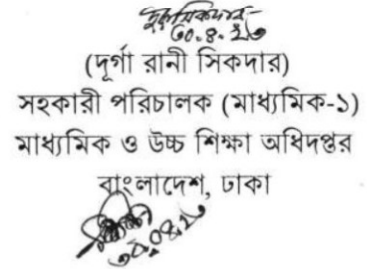 ৩০.৪.২৩
(দূর্গা রানী সিকদার)
সহকারী পরিচালক (মাধ্যমিক-১)
মাধ্যমিক ও উচ্চ শিক্ষা অধিদপ্তর
বাংলাদেশ, ঢাকা